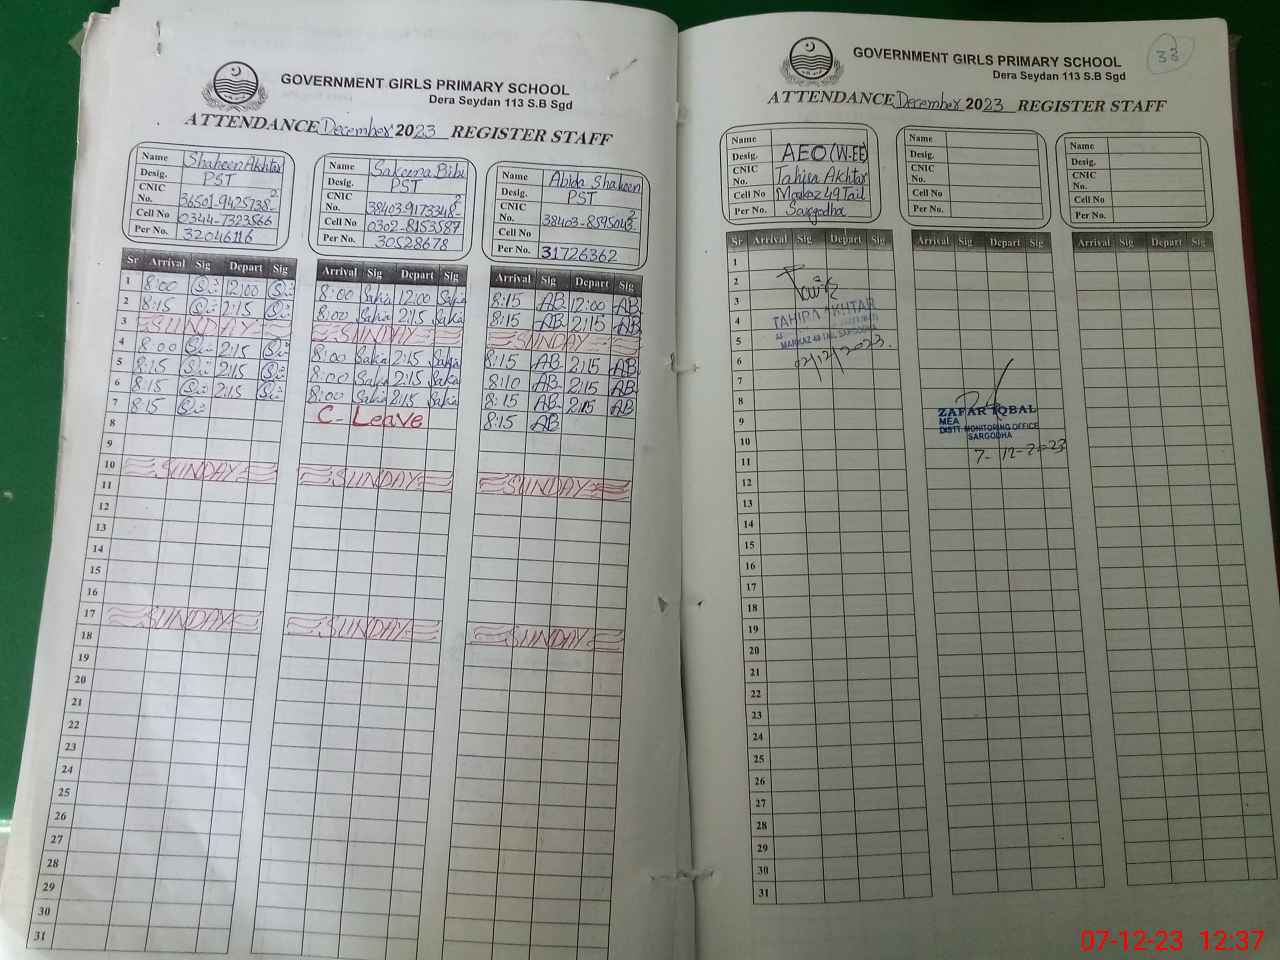 GOVERNMENT GIRLS PRIMARY SCHOOL
Dera Seydan 113 S.B Sgd
ATTENDANCE December 2023 REGISTER STAFF
Name Shaheen Akhtar
Desig. PST
CNIC No. 36501-9425738-2
Cell No 0344-7323566
Per No. 32046116
Name Sakeena Bibi
Desig. PST
CNIC No. 38403-9173348-2
Cell No 0302-8153587
Per No. 30528678
Name Abida Shaheen
Desig. PST
CNIC No. 38403-8595043-2
Cell No
Per No. 31726362
Sr Arrival Sig Depart Sig Arrival Sig Depart Sig Arrival Sig Depart Sig
1 8:00 12:00 8:00 Saki 12:00 Saki 8:15 AB 12:00 AB
2 8:15 2:15 8:00 Saki 2:15 Saki 8:15 AB 2:15 AB
3 SUNDAY SUNDAY SUNDAY
4 8:00 2:15 8:00 Saki 2:15 Saki 8:15 AB 2:15 AB
5 8:15 2:15 8:00 Saki 2:15 Saki 8:10 AB 2:15 AB
6 8:15 2:15 8:00 Saki 2:15 Saki 8:15 AB 2:15 AB
7 8:15 C-Leave 8:15 AB
8
9
10 SUNDAY SUNDAY SUNDAY
11
12
13
14
15
16
17 SUNDAY SUNDAY SUNDAY
18
19
20
21
22
23
24
25
26
27
28
29
30
31
33
GOVERNMENT GIRLS PRIMARY SCHOOL
Dera Seydan 113 S.B Sgd
ATTENDANCE December 2023 REGISTER STAFF
Name
Desig. AEO (W-EE)
CNIC No. Tahira Akhtar
Cell No Markaz 49 Tail
Per No. Sargodha
Name
Desig.
CNIC No.
Cell No
Per No.
Name
Desig.
CNIC No.
Cell No
Per No.
Sr Arrival Sig Depart Sig Arrival Sig Depart Sig Arrival Sig Depart Sig
1
2
3
4 TAHIRA AKHTAR
5 MARKAZ 49 TAIL SARGODHA
6 02/12/2023.
7
8
9 ZAFAR IQBAL
MEA
10 DISTT. MONITORING OFFICE
SARGODHA
11 7-12-2023
12
13
14
15
16
17
18
19
20
21
22
23
24
25
26
27
28
29
30
31
07-12-23 12:37